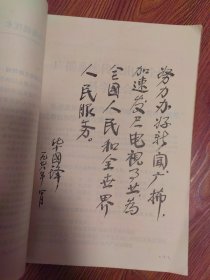 努力办好新闻广播，
加速发展电视事业为
全国人民和全世界
人民服务。
华国锋
一九七八年 月